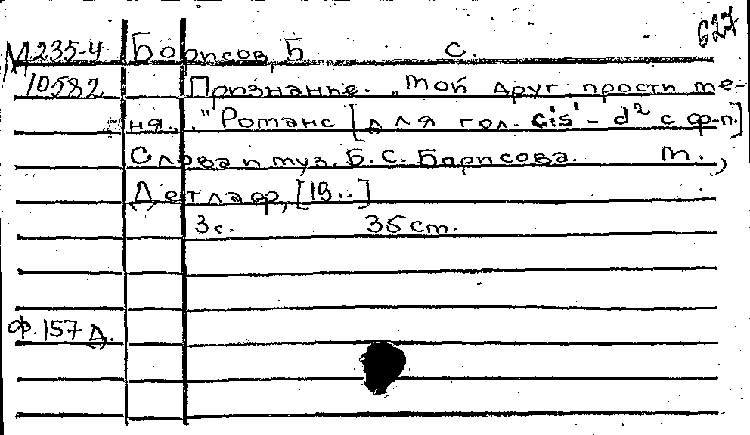 627
М 235-4 Борисов, Б. С.
10582 Признанье. „Мой друг, прости ме-
ня..." Романс [для гол. cis¹ - d² с ф-п.]
Слова и муз. Б. С. Борисова. М.,
Детлаф, [19..]
3 с. 35 ст.
Ф. 157 д.